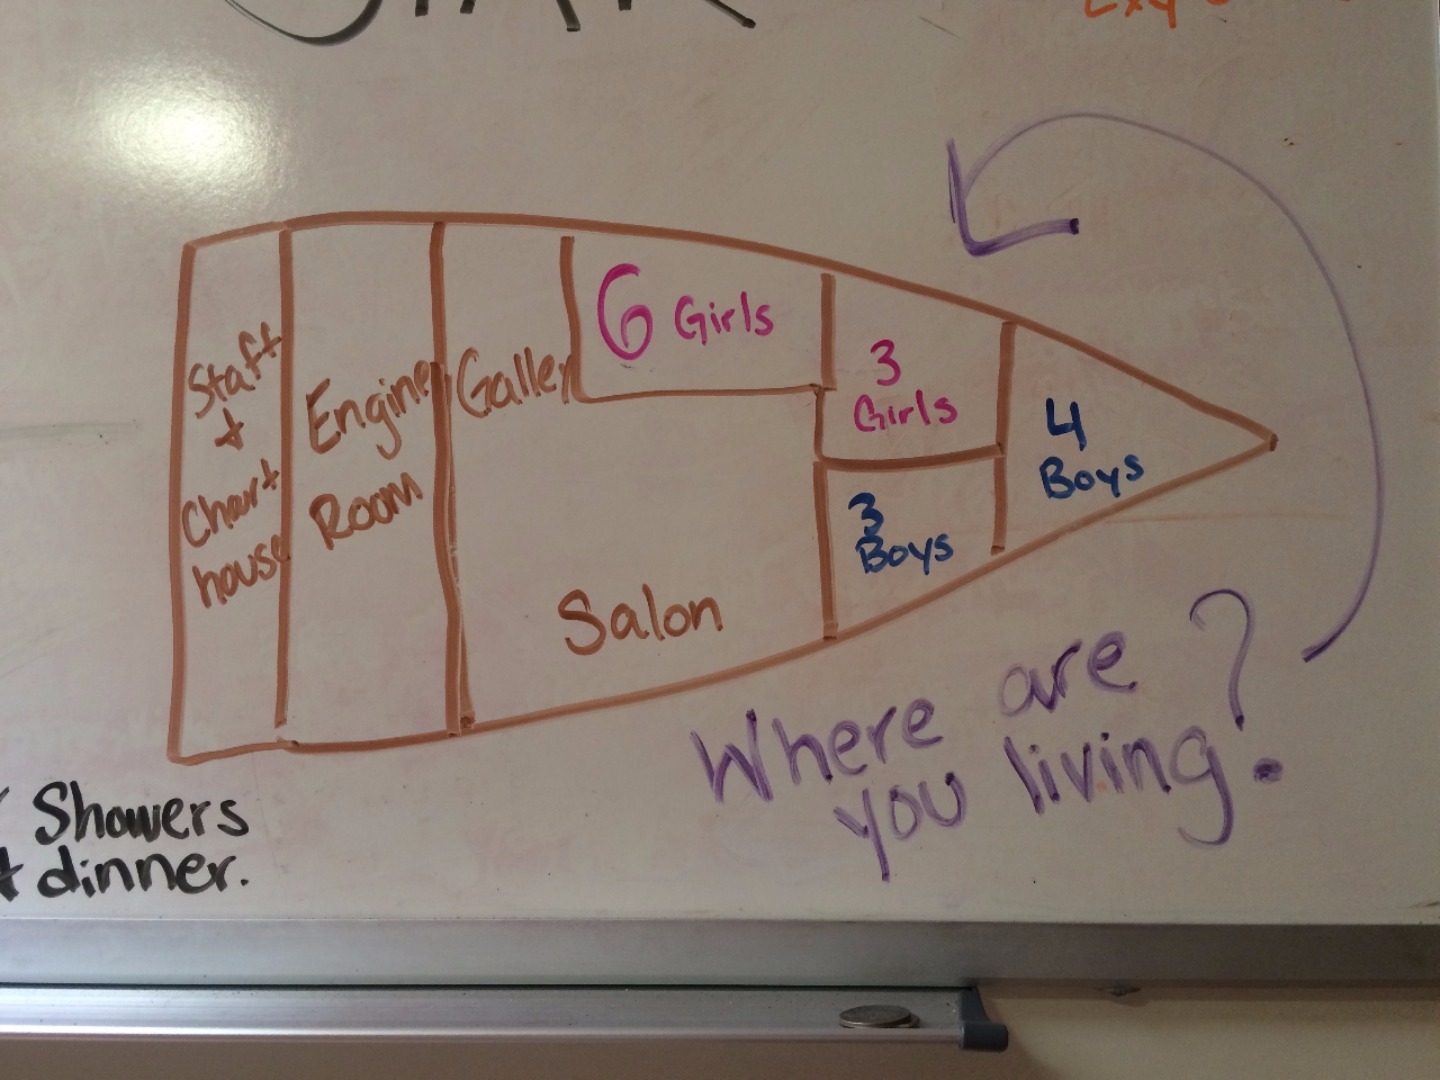 Staff
+
Chart
house
Engine
Room
Galley
6 Girls
3
Girls
4
Boys
3
Boys
Salon
Where are
you living?
Showers
+ dinner.